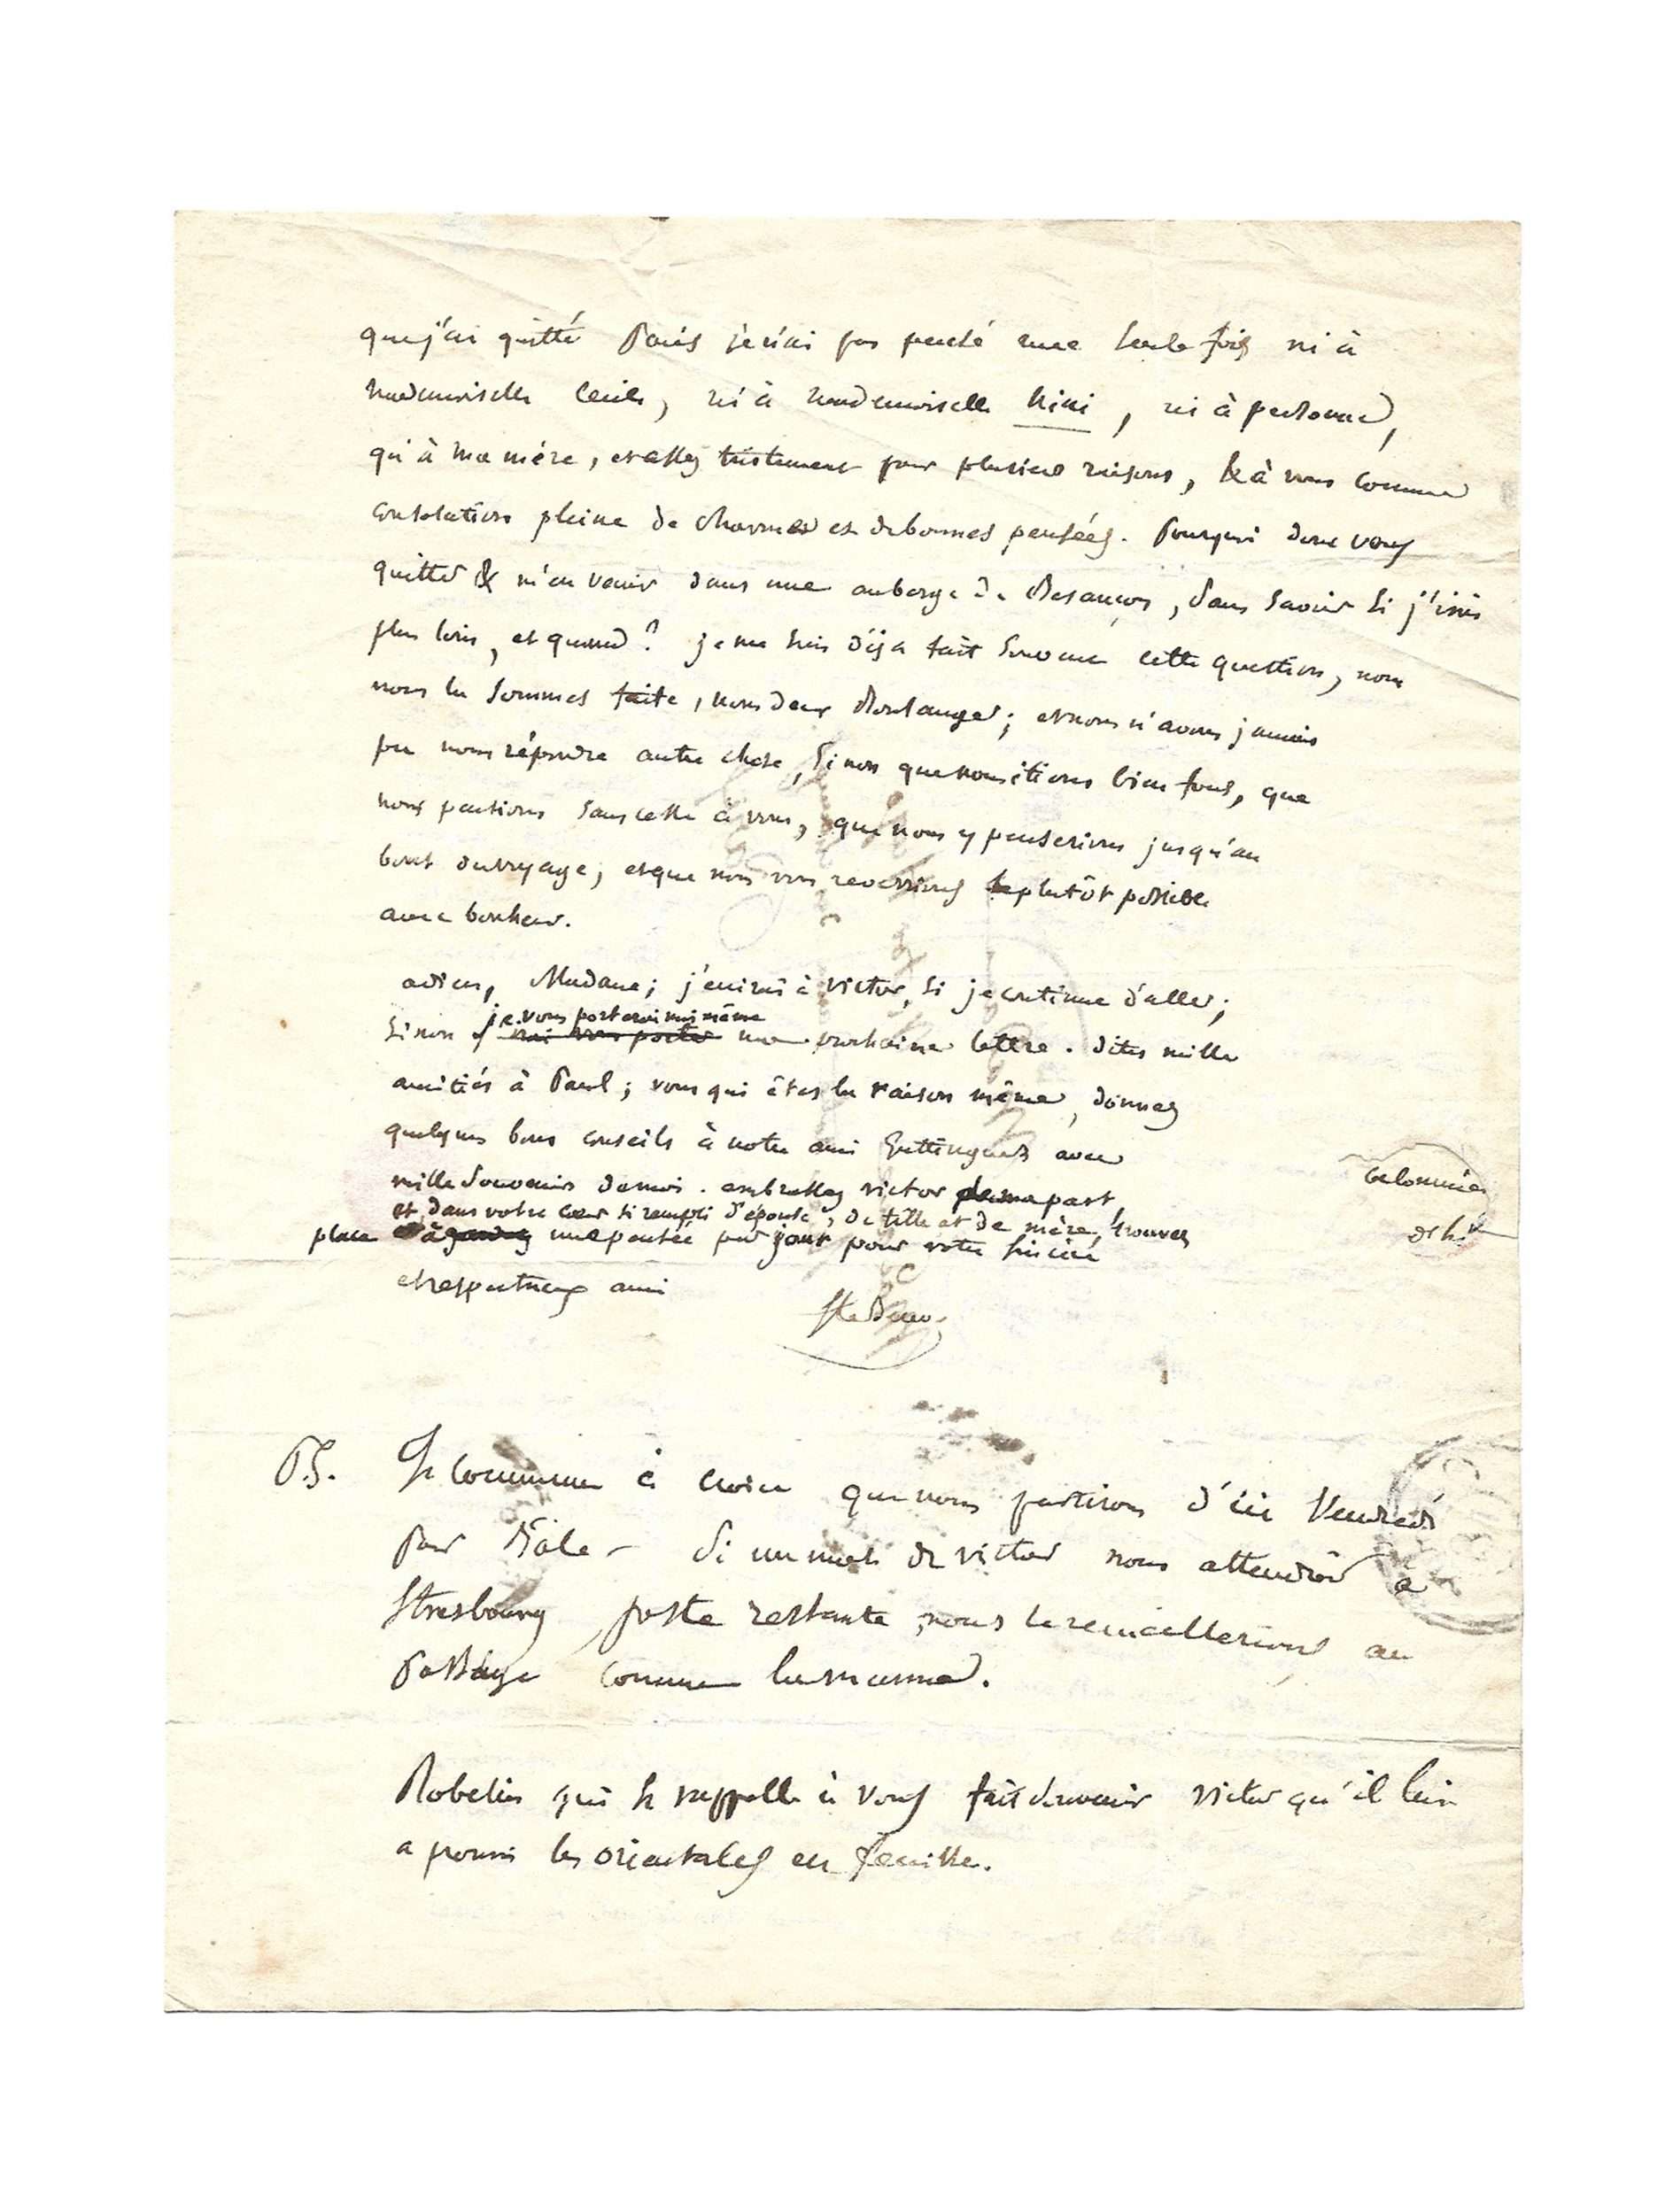 que j'ai quitté Paris je n'ai pas pensé une seule fois ni à
mademoiselle Cécile, ni à mademoiselle Nini, ni à personne,
qu'à ma mère, et assez tristement pour plusieurs raisons, & à vous comme
consolation pleine de charmes et de bonnes pensées. Pourquoi donc vous
quitter & m'en venir dans une auberge de Besançon, sans savoir si j'irais
plus loin, et quand? je me suis déja fait souvent cette question, nous
nous la sommes faite, nous deux Boulanger; et nous n'avons jamais
pu nous répondre autre chose, sinon que nous étions bien fous, que
nous pensions sans cesse à vous, que nous y penserions jusqu'au
bout du voyage, et que nous vous reverrions le plutôt possible
avec bonheur.
adieu, Madame; j'écrirai à Victor, si je continue d'aller;
je vous porterai moi même
sinon j'irai vous porter ma prochaine lettre. dites mille
amitiés à Paul; vous qui êtes la raison même, donnez
quelques bons conseils à notre ami Guttinguer avec
mille souvenirs de moi. embrassez victor de ma part
et dans votre cœur si rempli d'épouse, de fille et de mère, trouvez
place à une pensée par jour pour votre sincère
et respectueux ami
Ste Beuve
P.S. Je commence à croire que nous partirons d'ici Vendredi
pour Bâle – Si un mot de victor nous attendait à
Strasbourg poste restante, nous le recueillerions au
passage comme la manne.
Robelin qui se rappelle à vous fait souvenir Victor qu'il lui
a promis les orientales en feuille.